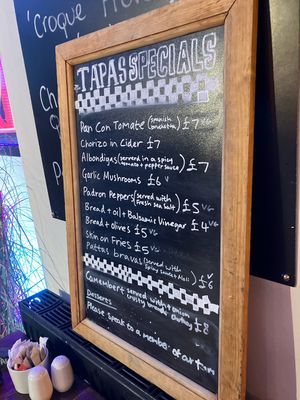 'Croque
TAPAS SPECIALS
Pan Con Tomate (Spanish bruschetta) £7 VG
Chorizo in Cider £7
Albondigas (served in a spicy tomato + pepper sauce) £7
Garlic Mushrooms £6
Padron Peppers (served with fresh sea salt) £5 VG
Bread + oil + Balsamic Vinegar £4 VG
Bread + olives £5 VG
Skin on Fries £5 VG
Pattas bravas (served with spicy sauce + Aioli) £6 V
Camembert served with onion crusty bread, chutney £8
Desserts
Please speak to a member of our team